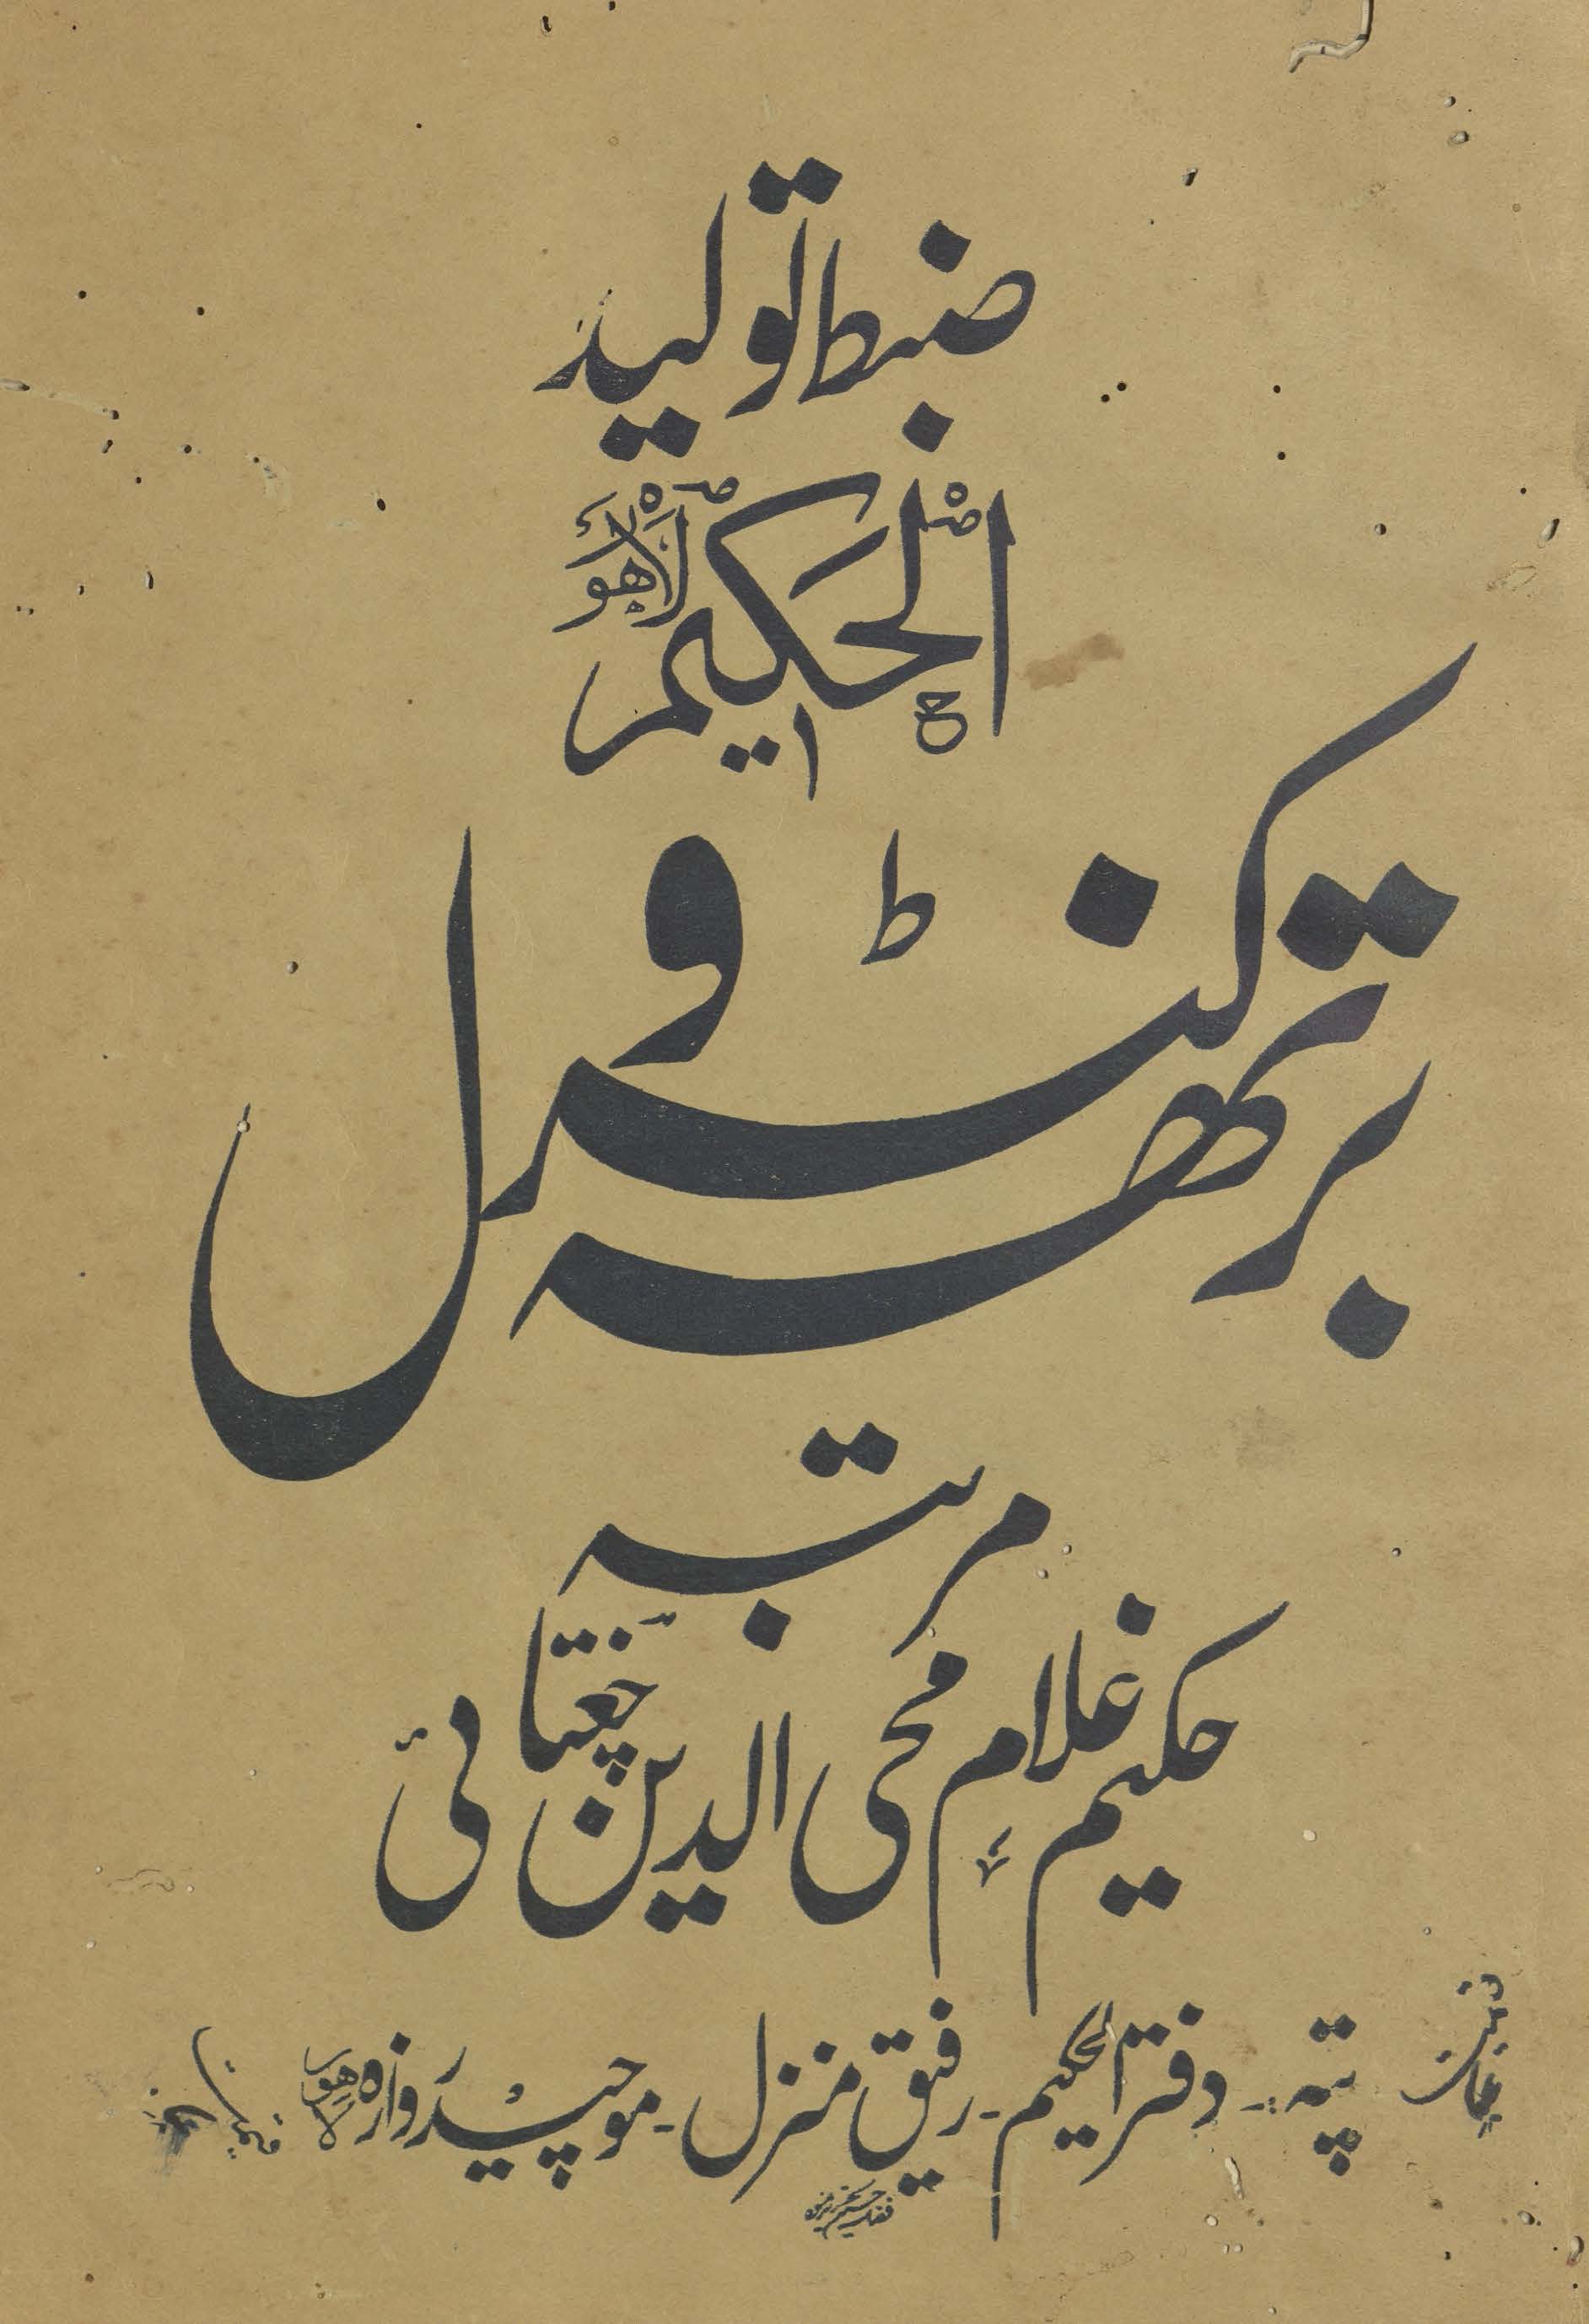 ضبط تولید
الحکیم لاہور
برتھ کنٹرول
مرتبہ
حکیم غلام محی الدین چغتائی
پتہ:- دفتر الحکیم - رفیق منزل - موچیدروازہ لاہور